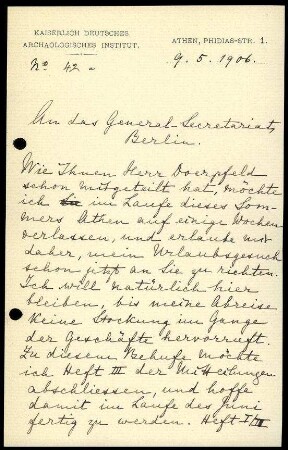 KAISERLICH DEUTSCHES
ARCHÄOLOGISCHES INSTITUT.
ATHEN, PHIDIAS-STR. 1.
No 42 -
9. 5. 1906.
An das General-Secretariat,
Berlin.
Wie Ihnen Herr Doerpfeld
schon mitgeteilt hat, möchte
ich im Laufe dieses Som-
mers Athen auf einige Wochen
verlassen, und erlaube mir
daher, mein Urlaubsgesuch
schon jetzt an Sie zu richten.
Ich will natürlich hier
bleiben, bis meine Abreise
keine Stockung im Gange
der Geschäfte hervorruft.
Zu diesem Behufe möchte
ich Heft III der Mitteilungen
abschliessen, und hoffe
damit im Laufe des Juni
fertig zu werden. Heft I/II